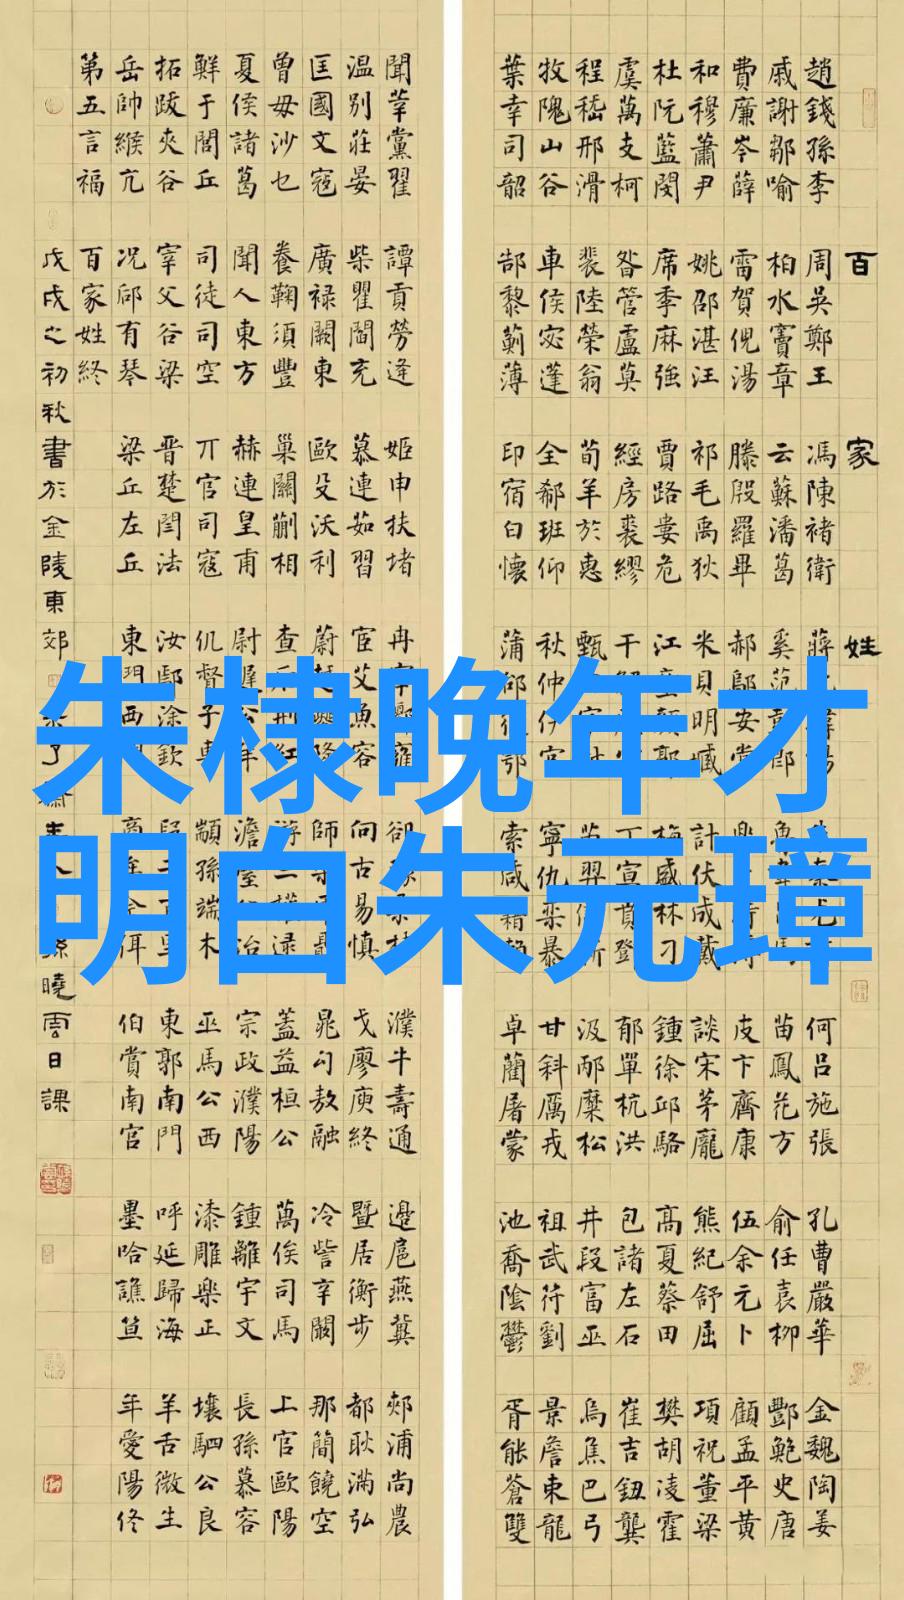 百家姓
趙錢孫李 周吳鄭王 馮陳褚衛 蔣 何呂施張 孔曹嚴華 金魏陶姜
戚謝鄒喻 柏水竇章 云蘇潘葛 奚范郎 魯 苗鳳花方 俞任袁柳 酆鮑史唐
費廉岑薛 雷賀倪湯 滕殷羅畢 郝鄔安常 皮卞齊康 伍余元卜 顧孟平黃
和穆蕭尹 姚邵湛汪 祁毛禹狄 米貝明臧 計伏成戴 談宋茅龐 熊紀舒屈 項祝董梁
杜阮藍閔 席季麻強 賈路婁危 江童顏郭 梅盛林刁 鍾徐邱駱 高夏蔡田 樊胡凌霍
虞萬支柯 昝管盧莫 經房裘繆 干 丁宣賁登 郁單杭洪 包諸左石 崔吉鈕龔
程嵇邢滑 裴陸榮翁 荀羊於惠 甄 羿 汲邴糜松 井段富巫 烏焦巴弓
牧隗山谷 車侯宓蓬 全郗班仰 秋仲伊宮 寧仇欒暴 甘斜厲戎 祖武符劉 景詹束龍
葉幸司韶 郜黎薊薄 印宿白懷 蒲邰鄂 索咸籍賴 卓藺屠蒙 池喬陰鬱 胥能蒼雙
聞莘黨翟 譚貢勞逄 姬申扶堵 冉宰酈雍 郤 濮牛壽通 邊扈燕冀 郟浦尚農
温別莊晏 柴瞿閻充 慕連茹習 宦艾魚容 向古易慎 戈廖庾終 暨居衡步 都耿滿弘
匡國文寇 廣祿闕東 歐殳沃利 蔚隆 師 晁勾敖融 冷訾辛闞 那簡饒空
曾毋沙乜 養鞠須豐 巢關蒯相 查后荊紅 游權逯 蓋益桓公 萬俟司馬 上官歐陽
夏侯諸葛 聞人東方 赫連皇甫 尉遲公羊 澹冶 宗政濮陽 鍾離宇文 長孫慕容
鮮于閭丘 司徒司空 丌官司寇 仉督子車 顓孫端木 巫馬公西 漆雕樂正 壤駟公良
拓跋夾谷 宰父谷梁 晉楚閆法 汝鄢涂欽 段百里 東郭南門 呼延歸海 羊舌微生
岳帥緱亢 況郈有琴 梁丘左丘 東門西 商佴 伯賞南宮 墨哈譙笪 年愛陽佟
第五言福 百家姓終
戊戌之初秋書於金陵東郊 孫曉雲日課
朱棣晚年才
明白朱元璋